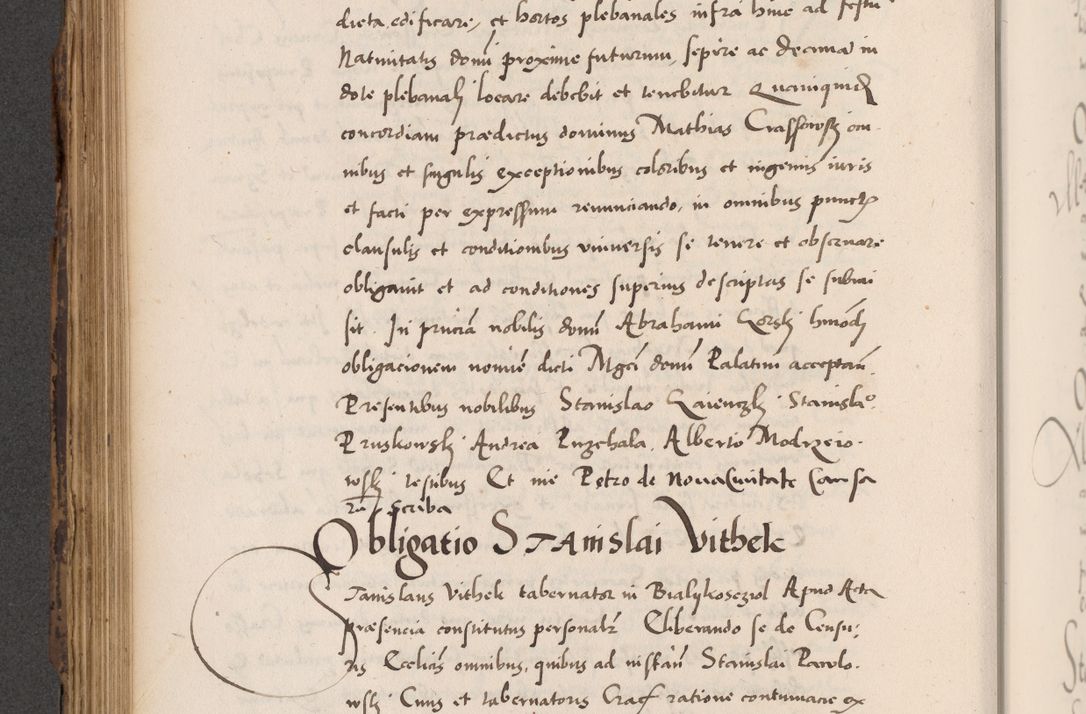 dicta, edificare, et hortos plebanales infra hinc ad festū
Natiuitatis domī proxime futurum, sepire ac decima in
dote plebanalj locare debebit et tenebitur
concordiam prædictus dominus Mathias om
nibus et singulis exceptionibus coloribus et ingenijs iuris
et facti per expressum renunciando, in omnibus punctꝭ
clausulis et conditionibus vniuersis se tenere et obseruare
obligauit et ad conditiones superius descriptas se submi
sit. In pñciā nobilis domī Abrahami Gorskj hmōdj
obligacionem noīe dicti Mgci domī Palatini acceptañ.
Presentibus nobilibus Stanislao Stanislaº
Pruskowskj Andrea Puzchala, Alberto Modrzeio
wskj testibus Et me Petro de Noua Ciuitate Causa
rū Scriba
Obligatio Stanislai Vithek
Stanislaus Vithek tabernator in Bialykoscziol Apud Acta
præsencia constitutus personalr Cliberando se de Censu:
ris Ecclicis omnibus, quibus ad instañ Stanislai Pawlo
wskj Ciuis et tabernatoris Crac ratione contumacie ex